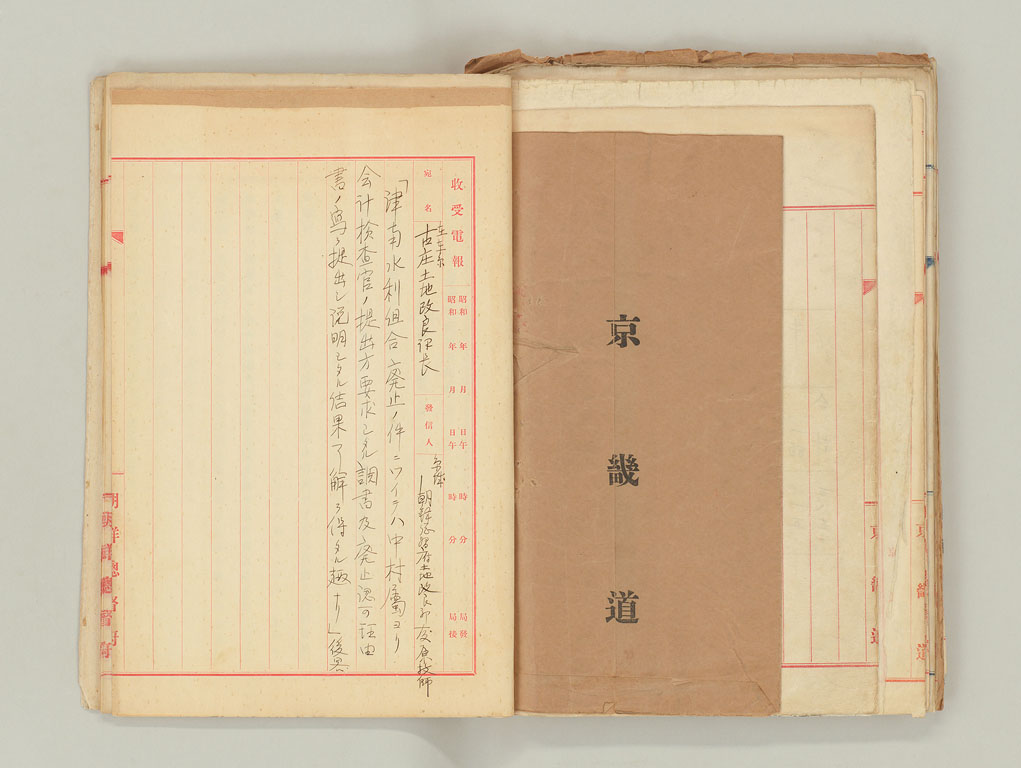 京畿道
收受電報
昭和 年 月 日午 時 分 局發
昭和 年 月 日午 時 分 局後
宛名
古庄土地改良課長
發信人
朝鮮総督府土地改良部 技師
「津南水利組合廃止ノ件ニツイテハ中村屬ヨリ
会計検査官ノ提出方要求シタル調書及廃止認可理由
書ノ寫ヲ提出シ説明シタル結果了解ヲ得タル趣ナリ」
朝鮮總督府
京畿道